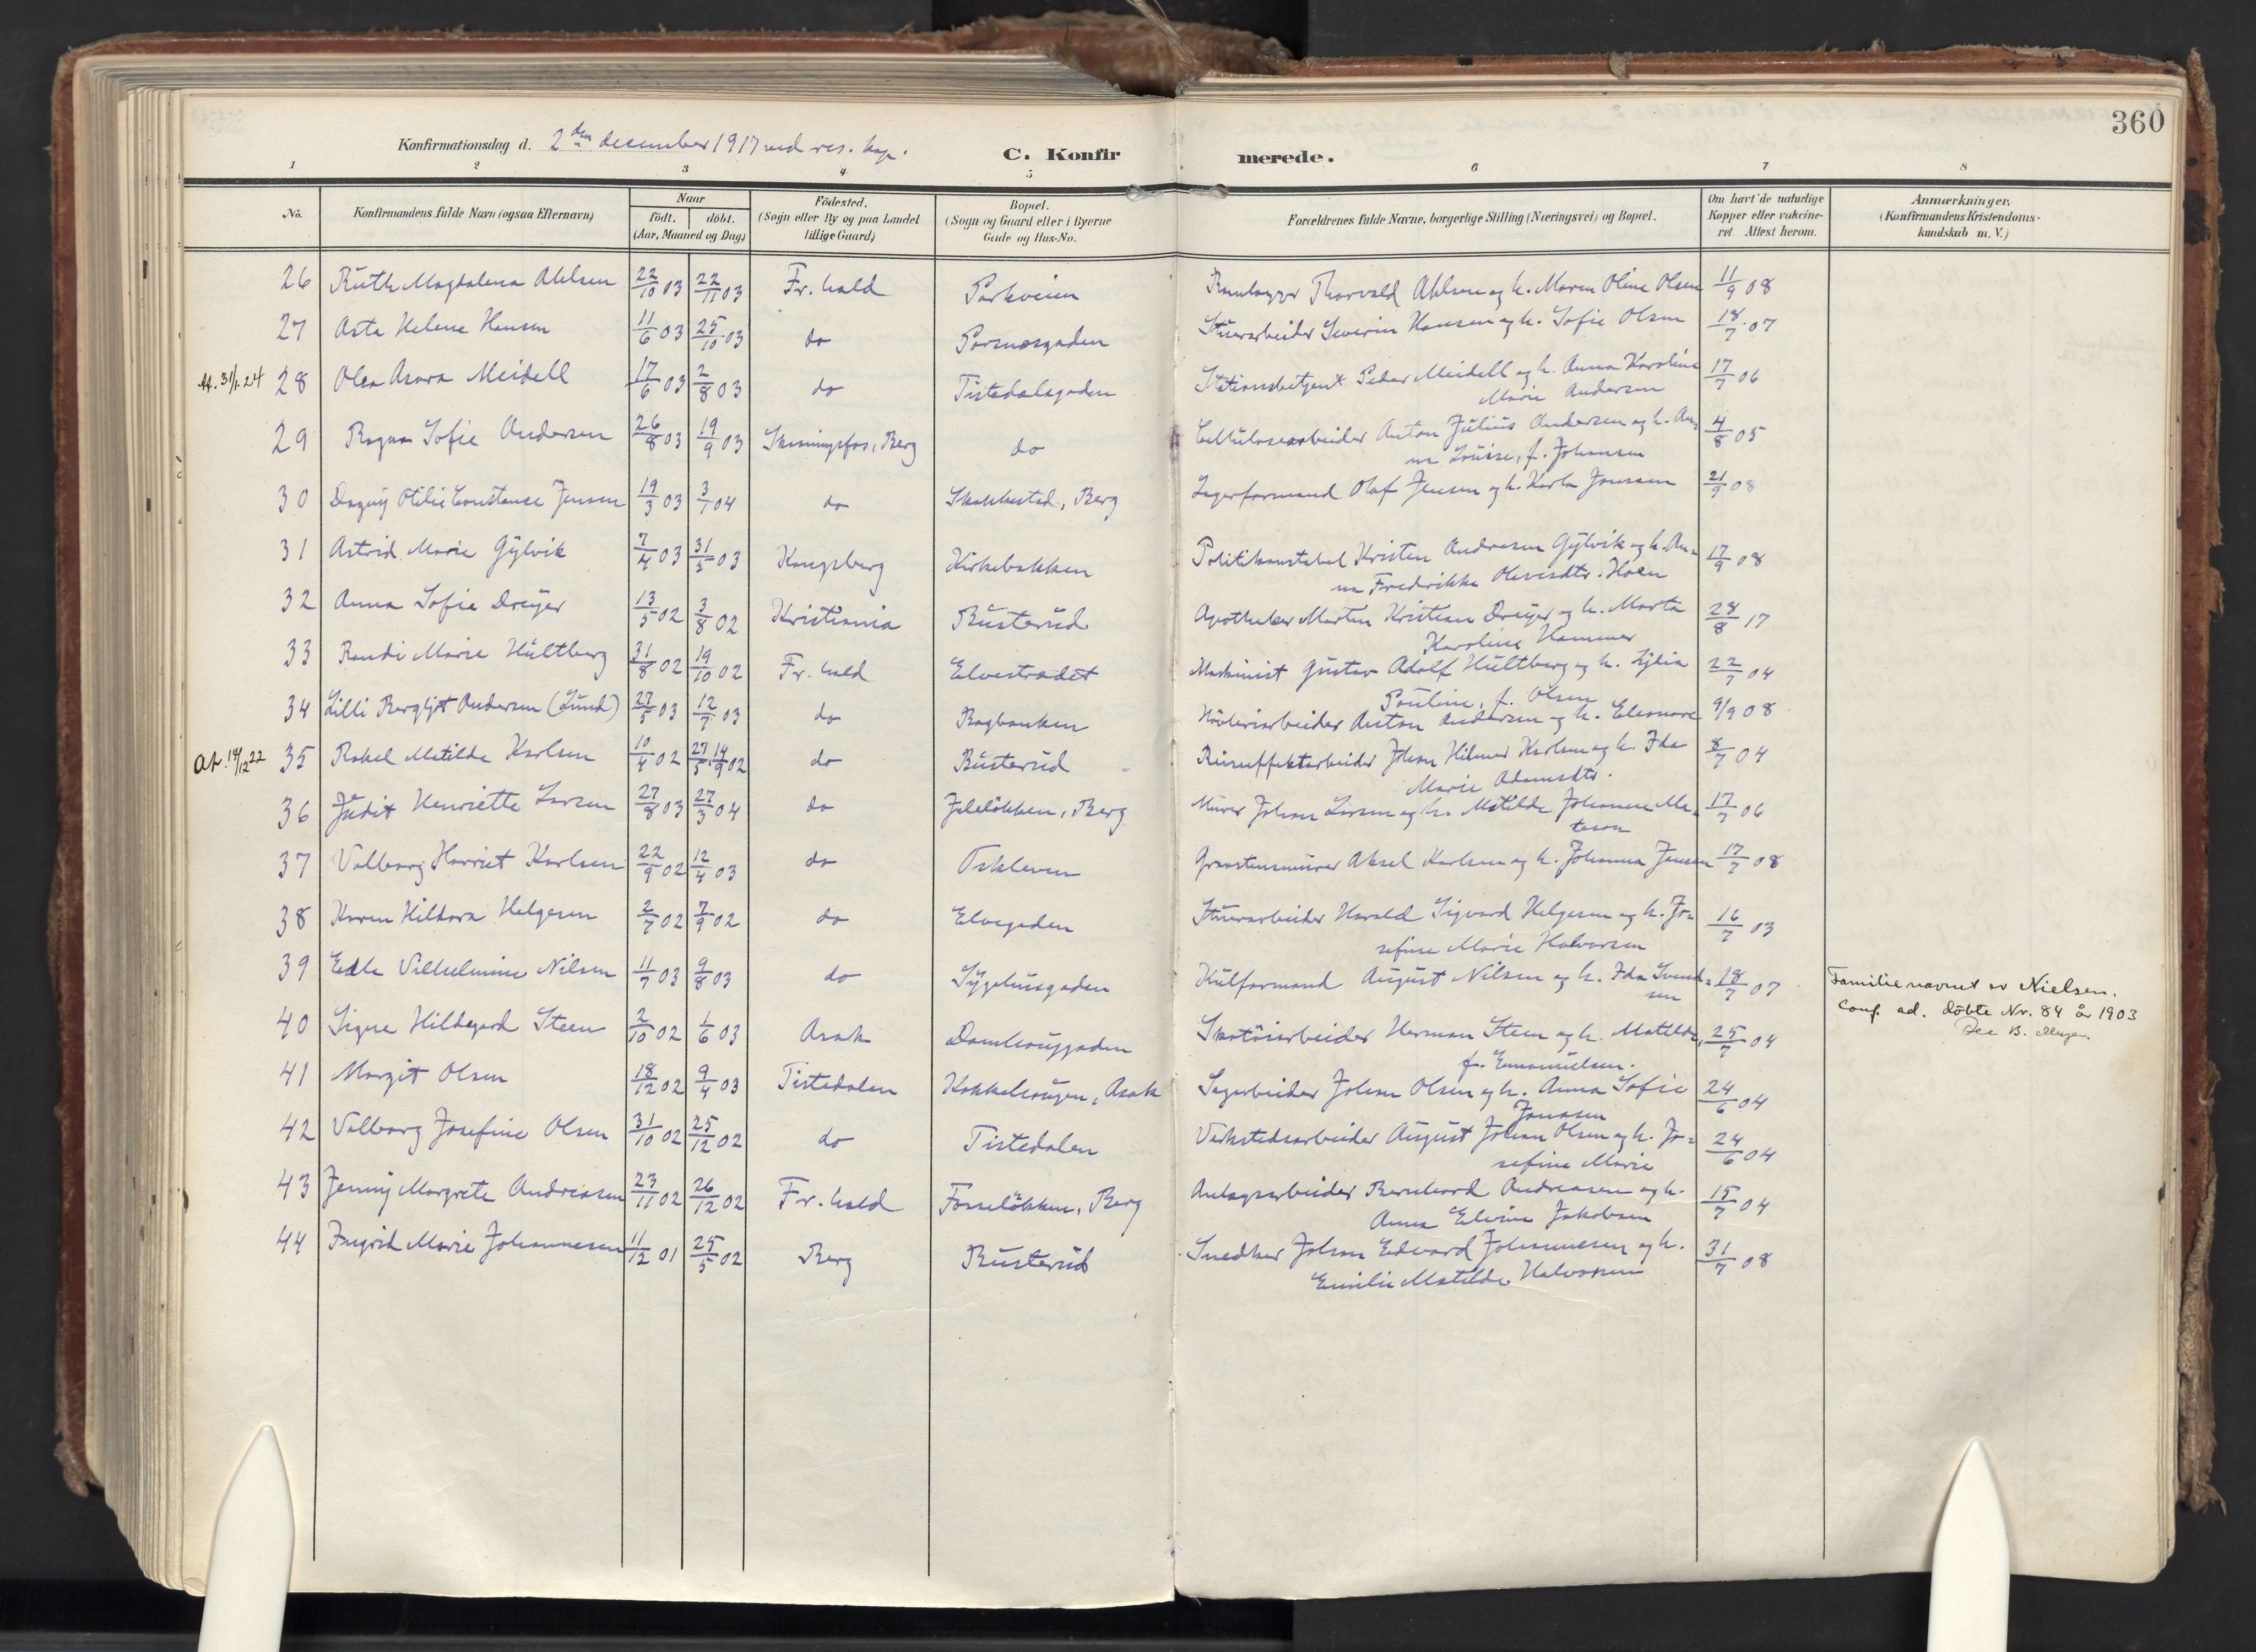 360
Konfirmationsdag d. 2den december 1917 ved res. kap.
C. Konfirmerede.
1 2 3 4 5 6 7 8
No. Konfirmandens fulde Navn (ogsaa Efternavn) Naar født. døbt. (Aar, Maaned og Dag) Fødested. (Sogn eller By og paa Landet tillige Gaard) Bopæl. (Sogn og Gaard eller i Byerne Gade og Hus-No. Forældrenes fulde Navne, borgerlige Stilling (Næringsvei) og Bopæl. Om havt de naturlige Kopper eller vakcineret Attest herom. Anmærkninger. (Konfirmandens Kristendomskundskab m. V.)
26 Ruth Magdalena Ahlsen 22/10 03 22/11 03 Fr.hald Parkveien Thorvald Ahlsen og h. Maren Oline Olsen 11/9 08
27 Asta Helene Hansen 11/6 03 25/10 03 do Stuerarbeider Severin Hansen og h. Sofie Olsen 18/7 07
31/1 24 28 Olga Asora Meidell 17/6 03 2/8 03 do Tistedalsgaden Stationsbetjent Peder Meidell og h. Anna Karoline 17/7 06
Marie Andersen
29 Ragna Sofie Andersen 26/8 03 19/9 03 Skonningsfos, Berg do Cellulosearbeider Anton Julius Andersen og h. An= 4/8 05
na Louise, f. Johansen
30 Dagny Otilie Constanse Jensen 19/3 03 3/1 04 do Skakkestad, Berg Lagerformand Olaf Jensen og h. Karla Jonsson 21/9 08
31 Astrid Marie Gylvik 7/4 03 31/5 03 Kongsberg Kirkebakken Politikonstabel Kristen Andresen Gylvik og h. An= 17/9 08
na Fredrikke Olavesdtr. Hoen
32 Anna Sofie Dreyer 13/5 02 3/8 02 Kristiania Busterud Apotheker Morten Kristian Dreyer og h. Marta 28/8 17
Karoline Hammer
33 Randi Marie Hultberg 31/8 02 19/10 02 Fr.hald Elvestrædet Maskinist Gustav Adolf Hultberg og h. Lydia 22/7 04
Pauline, f. Olsen
34 Lilli Bergljot Andersen (Lund) 27/5 03 12/7 03 do Bagbanken Høvleriarbeider Anton Andersen og h. Eleonore 9/9 08
14/12 22 35 Rakel Matilde Karlsen 10/4 02 27/5, 14/9 02 do Busterud Johan Hilmar Karlsen og h. Ida 8/7 04
Marie Adamsdtr.
36 Judit Henriette Larsen 27/8 03 27/3 04 do Berg Murer Johan Larsen og h. Matilde Johanna Ma= 17/7 06
teson
37 Valborg Harriet Karlsen 22/9 02 12/4 03 do Oskleven Graastensmurer Aksel Karlsen og h. Johanna Jensen 17/7 08
38 Karen Hildora Helgesen 2/7 02 7/9 02 do Elvegaden Stuerarbeider Harald Sigvard Helgesen og h. Jo= 16/7 03
sefine Marie Halvorsen
39 Edle Vilhelmine Nilsen 11/7 03 9/8 03 do Sygehusgaden Kulformand August Nilsen og h. Ida Svend= 18/7 07
sen
Familienavnet er Nielsen.
Conf. ad. döbte Nr. 84 år 1903
40 Signe Hildegard Steen 2/10 02 1/6 03 Asak Damhauggaden Skotöiarbeider Herman Steen og h. Matilde, 25/7 04
f. Emanuelsen.
41 Margit Olsen 18/12 02 9/4 03 Tistedalen Kokkehaugen, Asak Sagarbeider Johan Olsen og h. Anna Sofie 24/6 04
Jonassen
42 Valborg Josefine Olsen 31/10 02 25/12 02 do Tistedalen Verkstedsarbeider August Johan Olsen og h. Jo= 24/6 04
sefine Marie
43 Jenny Margrete Andreasen 23/11 02 26/12 02 Fr.hald Fosseløkken, Berg Anlægsarbeider Bernhard Andreasen og h. 15/7 04
Anna Elvine Jakobsen
44 Ingrid Marie Johannesen 11/12 01 25/5 02 Berg Busterud Snedker Johan Edvard Johannesen og h. 31/7 08
Emilie Matilde Halvorsen